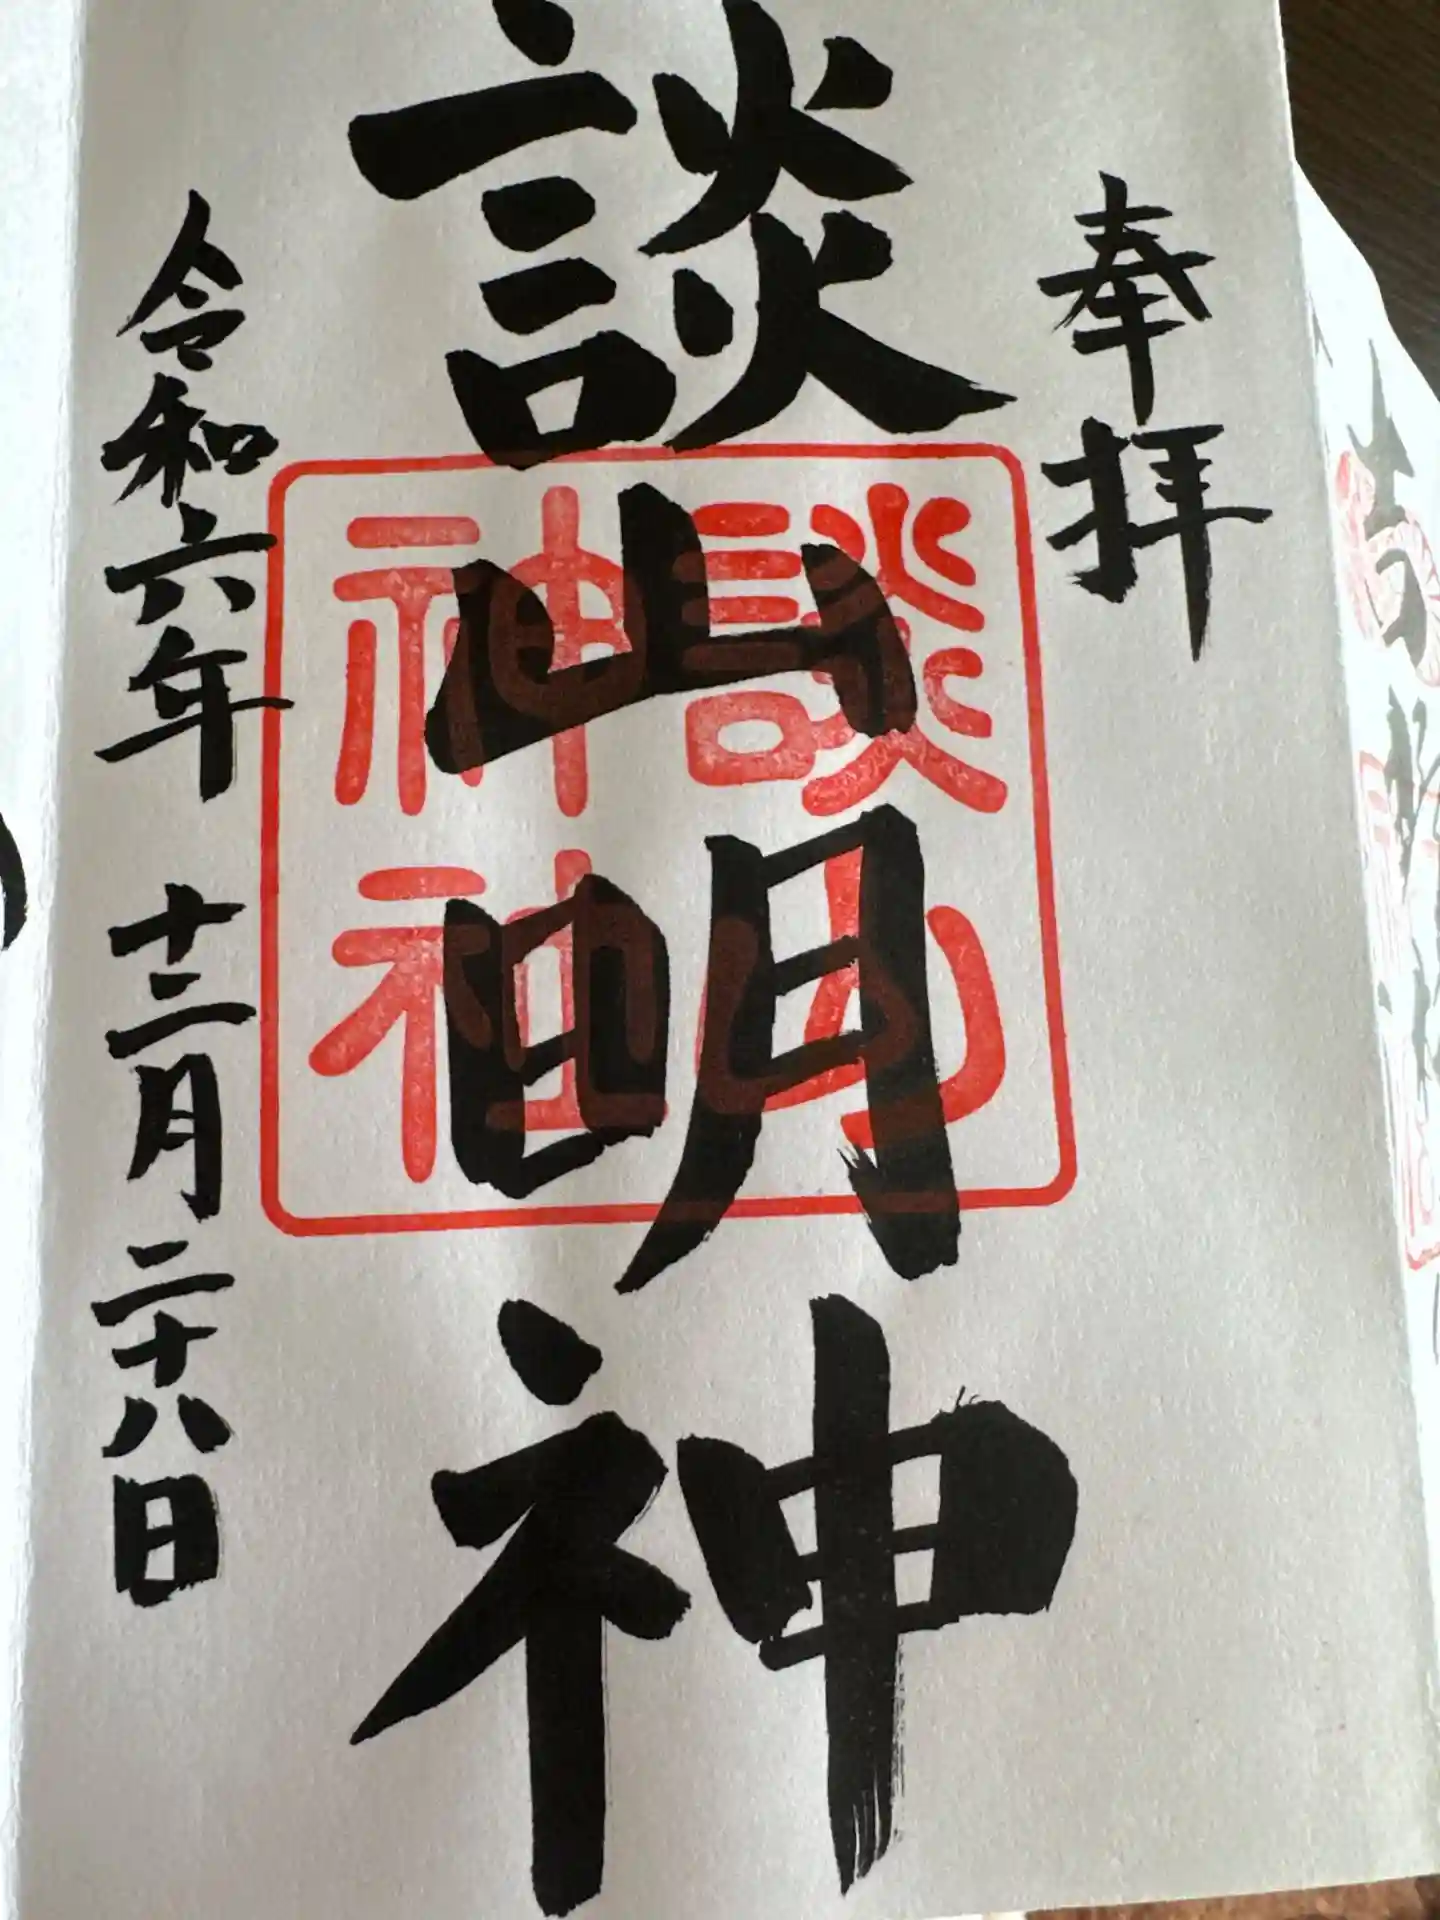 奉拝
談山明神
談山
神社
令和六年 十二月 二十八日